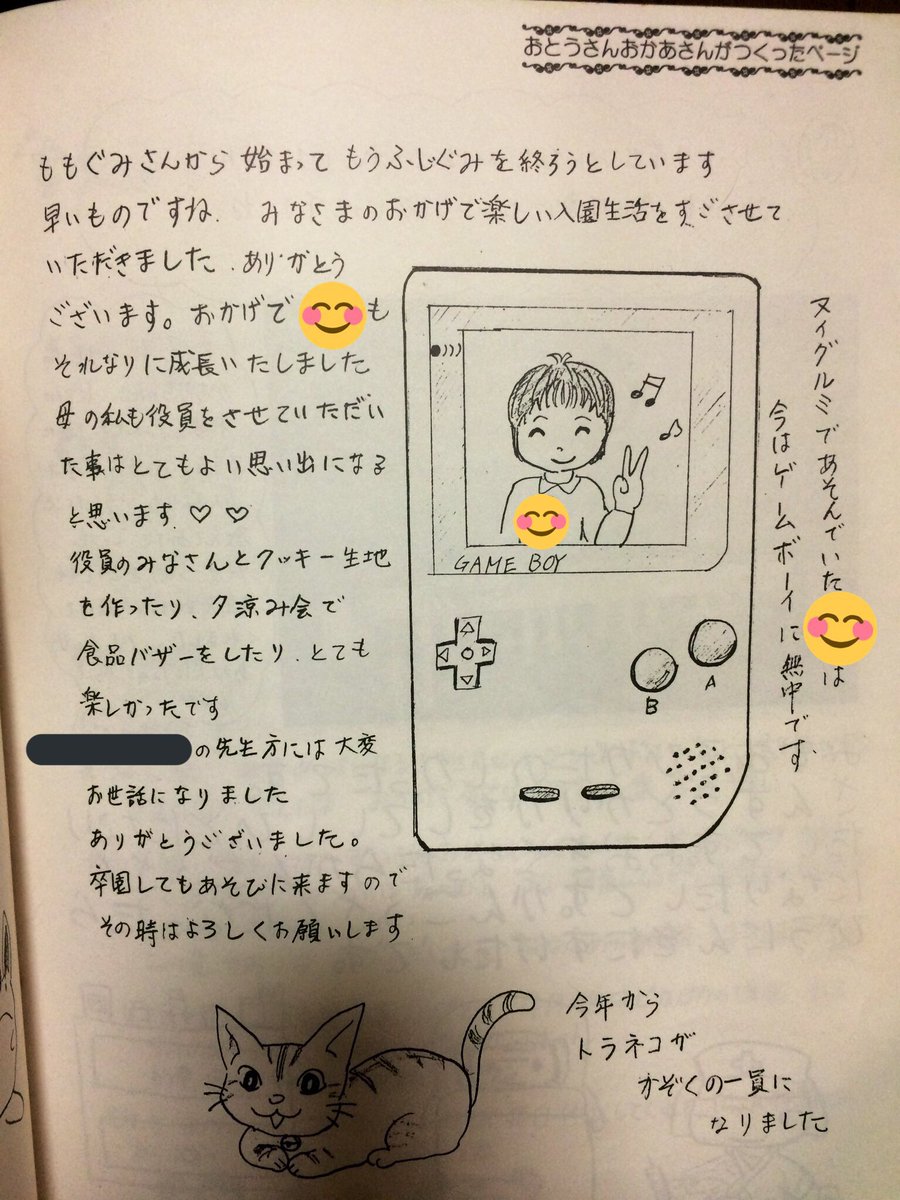 おとうさんおかあさんがつくったページ
ももぐみさんから 始まって もうふじぐみを終ろうとしています
早いものですね. みなさまのおかげで楽しい入園生活をすごさせて
いただきました.ありがとう
ございます。おかげで😊も
それなりに成長いたしました
母の私も役員をさせていただい
た事はとてもよい思い出になる
と思います♡♡
役員のみなさんとクッキー生地
を作ったり、夕涼み会で
食品バザーをしたり、とても
楽しかったです
の先生方には大変
お世話になりました
ありがとうございました。
卒園してもあそびに来ますので
その時はよろしくお願いします
GAME BOY
B
A
ヌイグルミであそんでいた😊は
今はゲームボーイに無中です.
今年から
トラネコが
かぞくの一員に
なりました